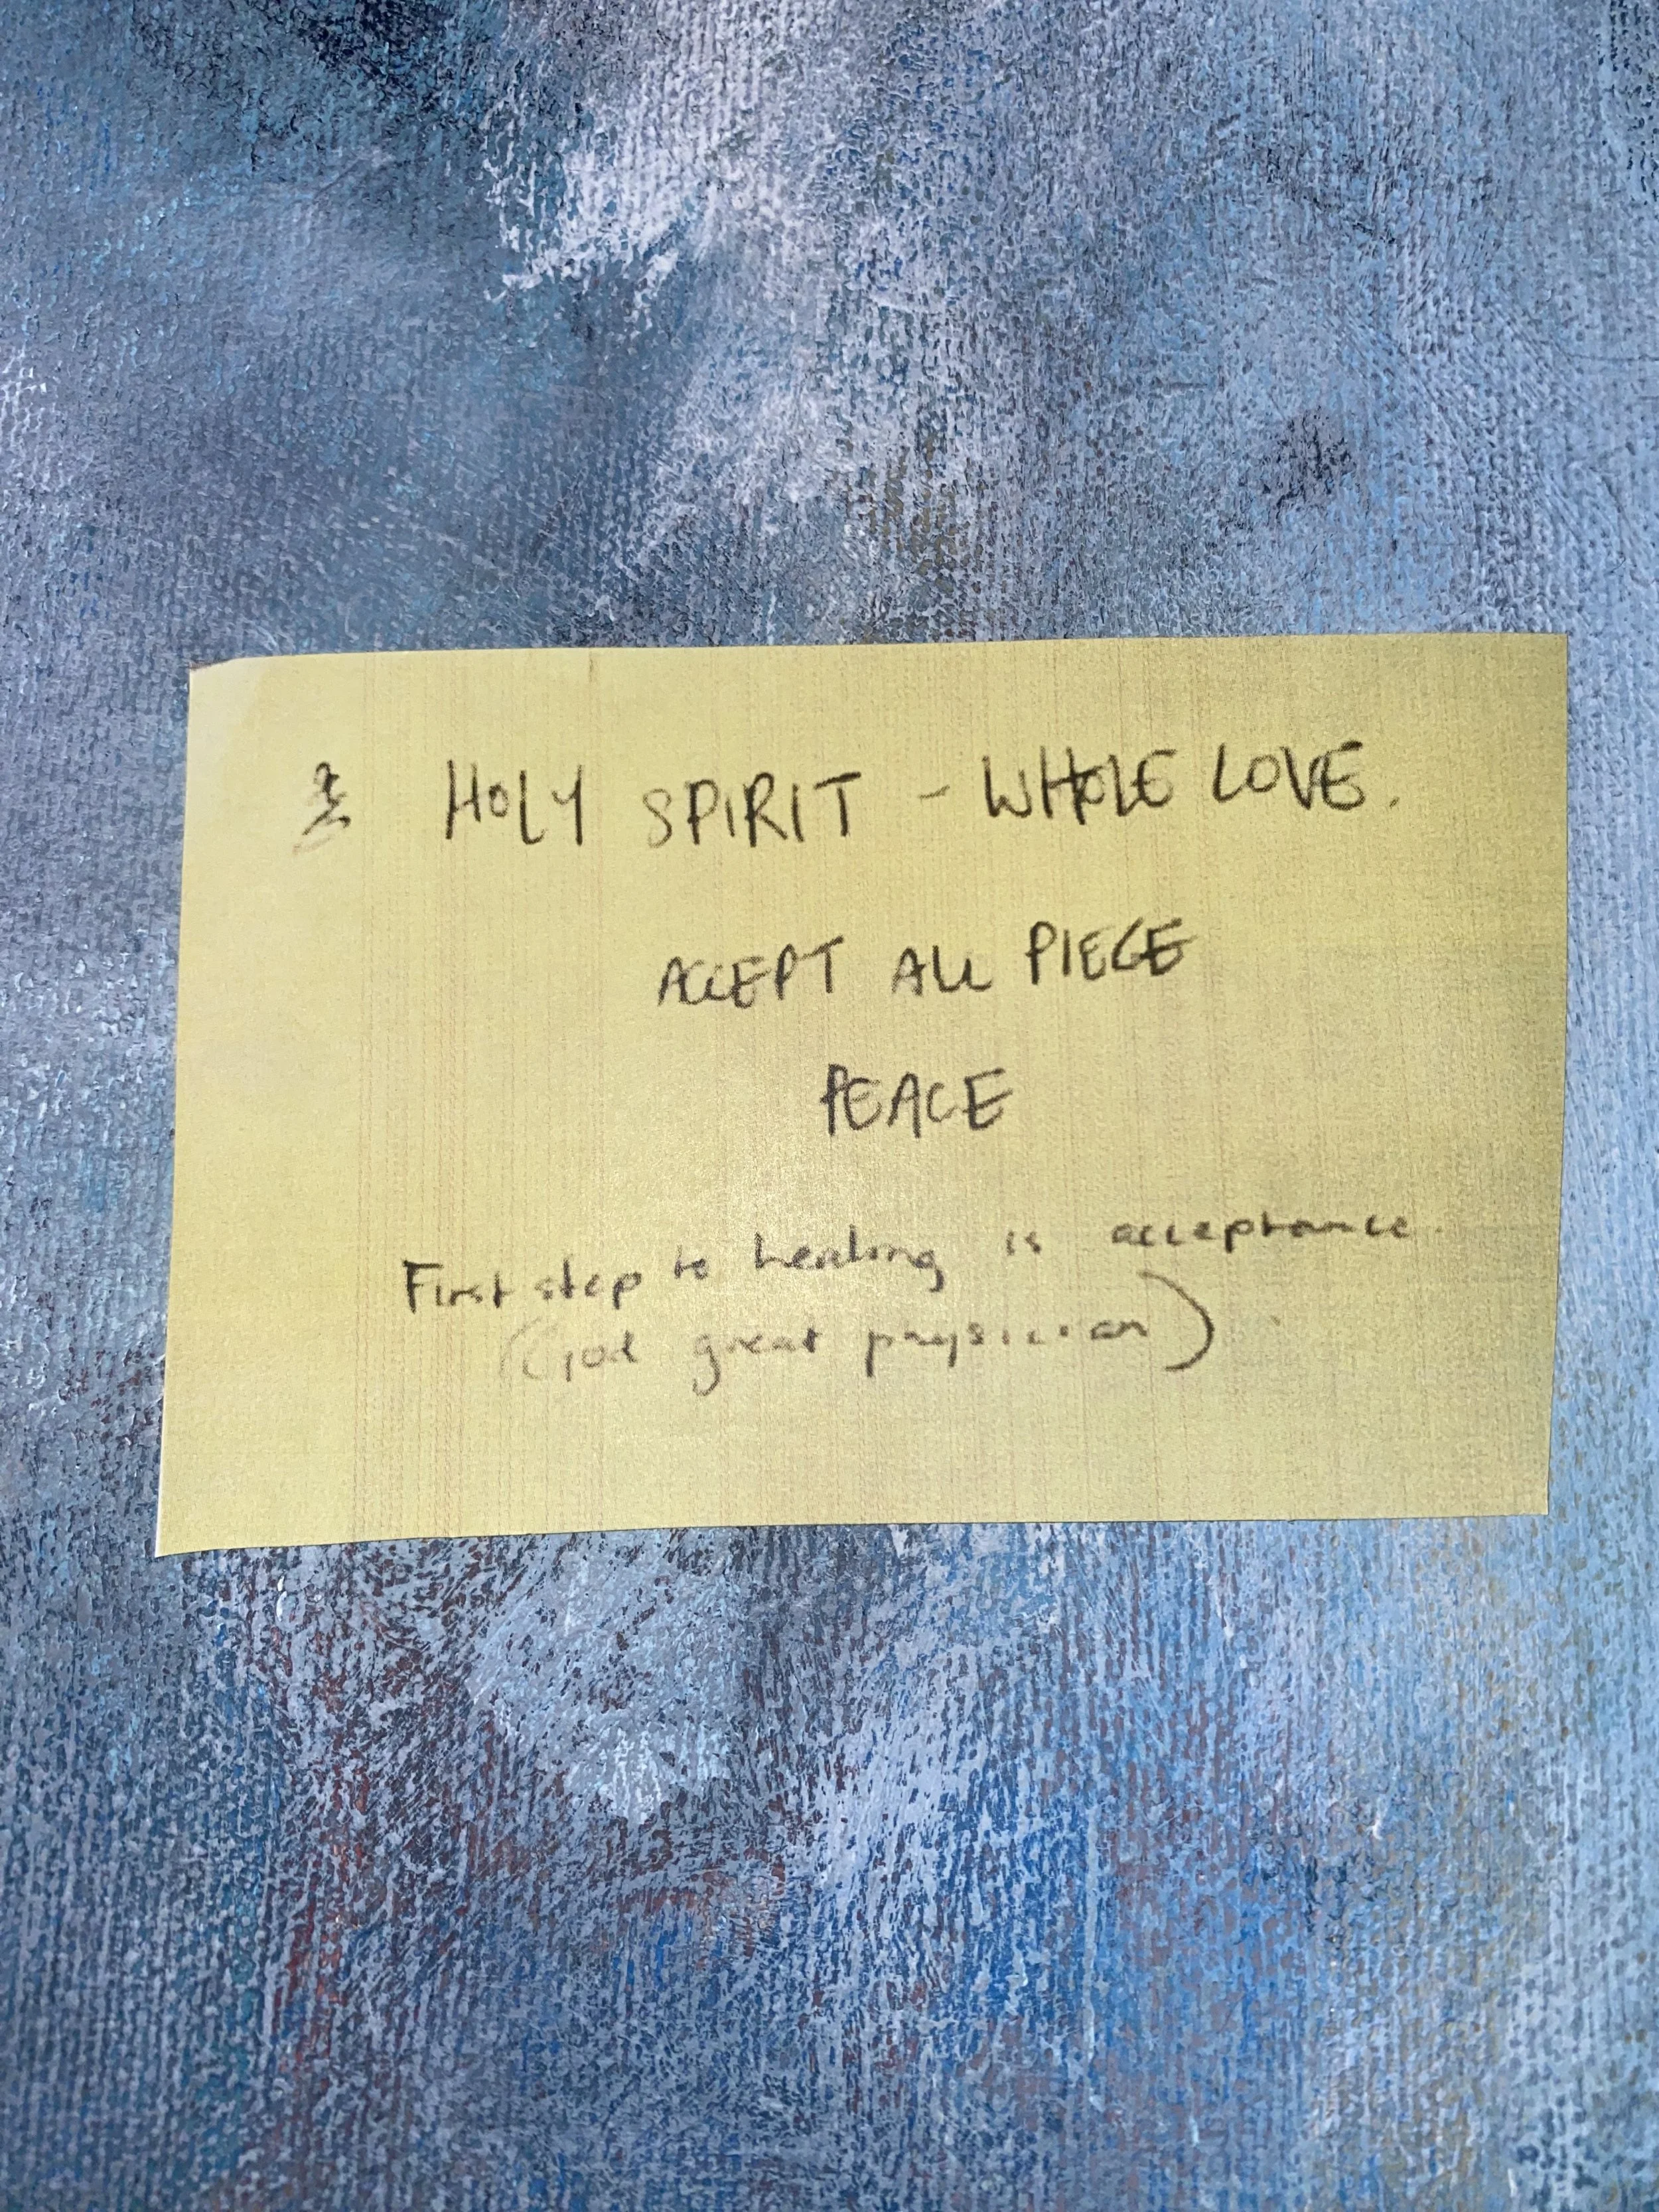 HOLY SPIRIT - WHOLE LOVE.
ACCEPT ALL PIECE
PEACE
First step to healing is acceptance.
(God great physician)